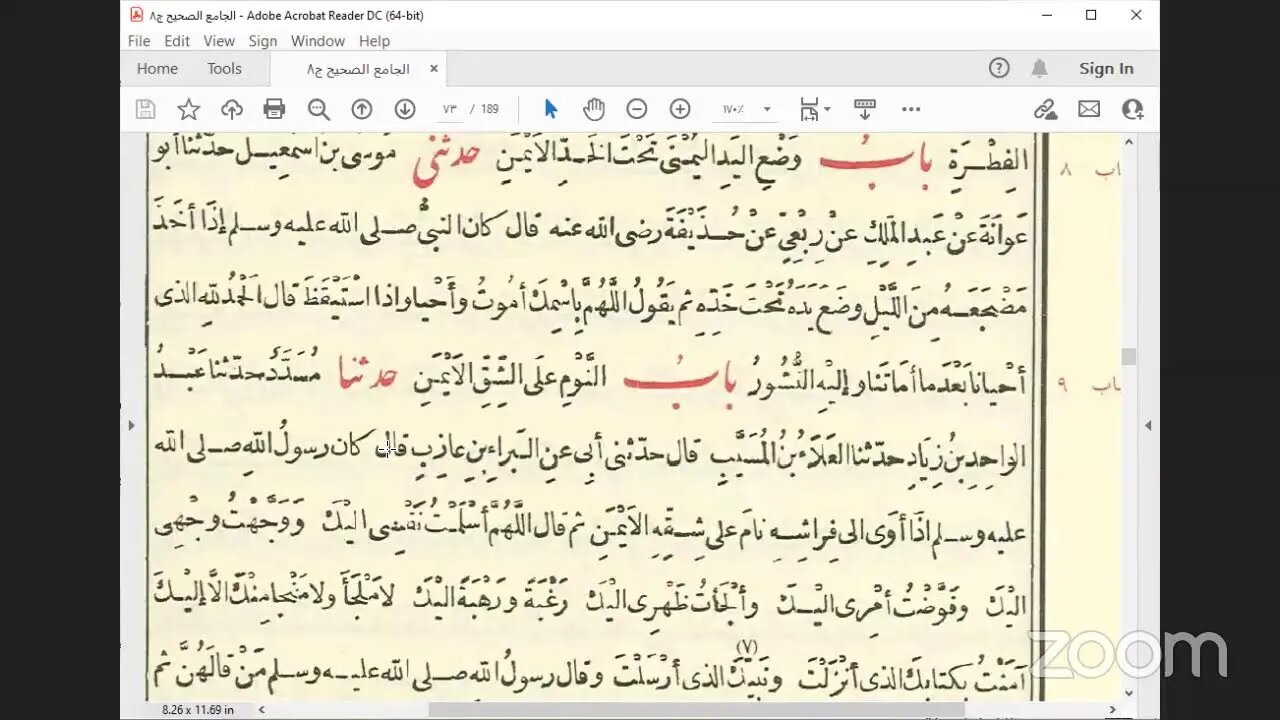 الجامع الصحيح ج٨ - Adobe Acrobat Reader DC (64-bit)
File Edit View Sign Window Help
Home Tools الجامع الصحيح ج٨ × Sign In
٧٣ / 189 ١٧٠٪
الفِطْرَةِ بابُ وَضْعِ اليَدِ اليُمْنَى تَحْتَ الخَدِّ الأَيْمَنِ حدثني موسى بن اسمعيل حدّثنا أبو
باب ٨
عَوَانَةَ عَنْ عَبدِ المَلِكِ عَنْ رِبْعِيٍّ عَنْ حُذَيْفَةَ رضى الله عنه قال كان النبىُّ صلى الله عليه وسلم إذَا أَخَذَ
مَضْجَعَهُ مِنَ اللَّيْلِ وضَعَ يَدَهُ تَحْتَ خَدِّهِ ثم يَقُولُ اللَّهُمَّ بِاسْمِكَ أمُوتُ وأَحْيا واذا اسْتَيْقَظَ قال الحَمْدُ لله الذى
أَحْيانا بَعْدَ ما أماتَنا وإلَيْهِ النُّشُورُ بابُ النَّوْمِ على الشِّقِّ الأَيْمَنِ حدثنا مُسَدَّدٌ حدّثنا عَبْدُ
باب ٩
الواحِدِ بنُ زِيَادٍ حدّثنا العَلَاءُ بنُ المُسَيَّبِ قال حدّثنى أبى عن البَراءِ بنِ عازِبٍ قال كان رسولُ اللهِ صلى الله
عليه وسلم اذَا أوَى الى فِراشِهِ نامَ على شِقِّهِ الأَيْمَنِ ثم قال اللَّهُمَّ أَسْلَمْتُ نَفْسِى اليْكَ وَوَجَّهْتُ وجْهِى
اليْكَ وفَوَّضْتُ أمْرِى اليْكَ وأَلْجَأْتُ ظَهْرِى اليْكَ رَغْبَةً ورَهْبَةً اليْكَ لا مَلْجَأَ ولا مَنْجا مِنْكَ الّا إلَيْكَ
آمَنْتُ بِكتابِكَ الذى أَنْزَلْتَ ونَبِيِّكَ (٧) الذى أَرْسَلْتَ وقال رسولُ الله صلى الله عليه وسلم مَنْ قالَهُنَّ ثم
zoom
8.26 x 11.69 in